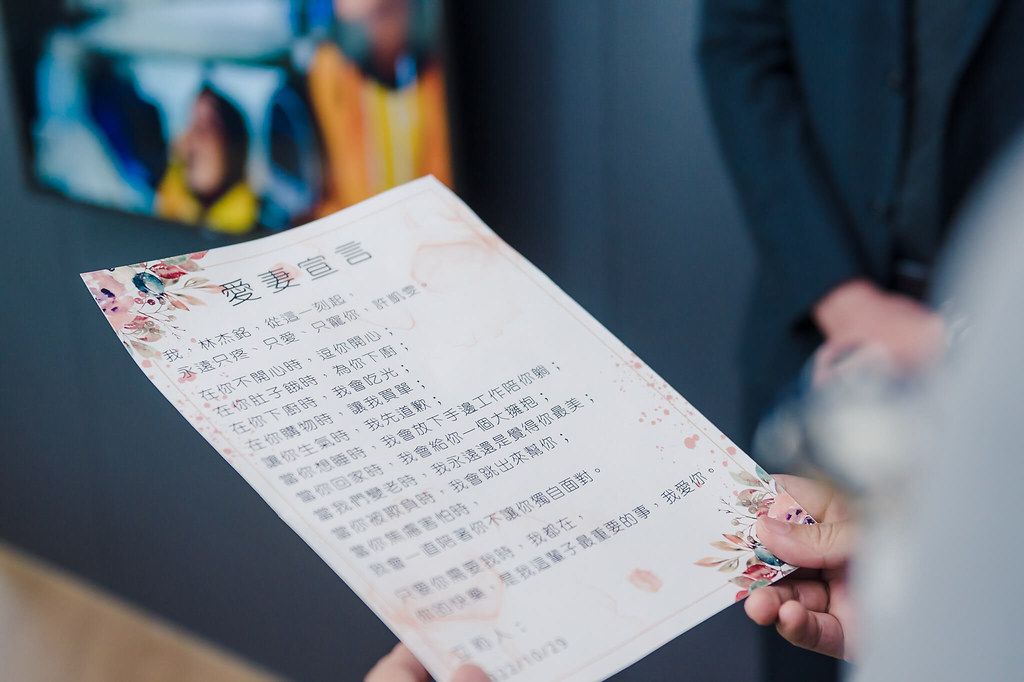 愛妻宣言
我，林杰銘，從這一刻起，
永遠只疼、只愛、只寵你，許凱雯。
在你不開心時，逗你開心；
在你肚子餓時，為你下廚；
在你下廚時，我會吃光；
在你購物時，讓我買單；
讓你生氣時，我先道歉；
當你想睡時，我會放下手邊工作陪你躺；
當你回家時，我會給你一個大擁抱；
當我們變老時，我永遠還是覺得你最美；
當你被欺負時，我會跳出來幫你；
當你焦慮害怕時，
我會一直陪著你不讓你獨自面對。
只要你需要我時，我都在，
你的快樂，是我這輩子最重要的事，我愛你。
立約人：
22/10/29